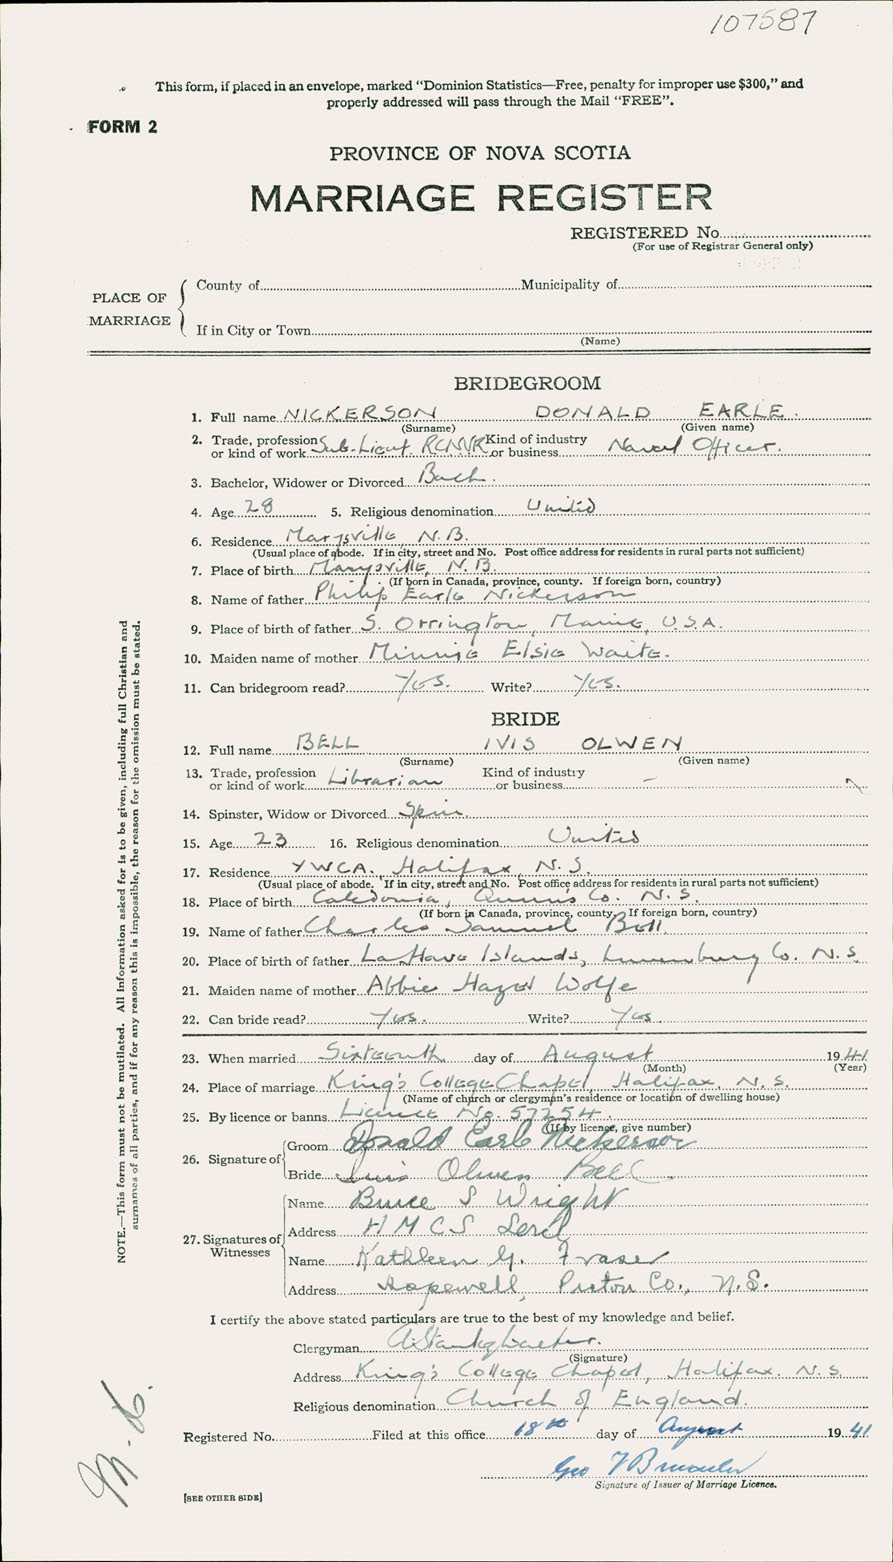 107587
This form, if placed in an envelope, marked “Dominion Statistics—Free, penalty for improper use $300,” and
properly addressed will pass through the Mail “FREE”.
FORM 2
PROVINCE OF NOVA SCOTIA
MARRIAGE REGISTER
REGISTERED No.
(For use of Registrar General only)
PLACE OF MARRIAGE
County of Municipality of
If in City or Town
(Name)
BRIDEGROOM
1. Full name NICKERSON DONALD EARLE.
(Surname) (Given name)
2. Trade, profession or kind of work Sub-Lieut. RCNVR Kind of industry or business Naval Officer.
3. Bachelor, Widower or Divorced Bach.
4. Age 28 5. Religious denomination United
6. Residence Marysville, N.B.
(Usual place of abode. If in city, street and No. Post office address for residents in rural parts not sufficient)
7. Place of birth Marysville, N.B.
(If born in Canada, province, county. If foreign born, country)
8. Name of father Philip Earle Nickerson
9. Place of birth of father S. Orrington, Maine, U.S.A.
10. Maiden name of mother Minnie Elsie Waite.
11. Can bridegroom read? Yes. Write? Yes.
BRIDE
12. Full name BELL IVIS OLWEN
(Surname) (Given name)
13. Trade, profession or kind of work Librarian Kind of industry or business —
14. Spinster, Widow or Divorced Spin.
15. Age 23 16. Religious denomination United
17. Residence YWCA. Halifax, N.S.
(Usual place of abode. If in city, street and No. Post office address for residents in rural parts not sufficient)
18. Place of birth Caledonia, Queens Co. N.S.
(If born in Canada, province, county. If foreign born, country)
19. Name of father Charles Samuel Bell
20. Place of birth of father LaHave Islands, Lunenburg Co. N.S.
21. Maiden name of mother Abbie Hazel Wolfe
22. Can bride read? Yes. Write? Yes
23. When married Sixteenth day of August 1941
(Month) (Year)
24. Place of marriage King's College Chapel, Halifax, N.S.
(Name of church or clergyman's residence or location of dwelling house)
25. By licence or banns Licence No. 57254.
(If by licence, give number)
26. Signature of
Groom Donald Earle Nickerson
Bride Ivis Olwen Bell
27. Signatures of Witnesses
Name Bruce S Wright
Address HMCS
Name Kathleen G. Fraser
Address Hopewell, Pictou Co., N.S.
I certify the above stated particulars are true to the best of my knowledge and belief.
Clergyman
(Signature)
Address King's College Chapel, Halifax. N.S.
Religious denomination Church of England.
Registered No. Filed at this office 18th day of August 1941
Geo
Signature of Issuer of Marriage Licence.
[SEE OTHER SIDE]
NOTE.—This form must not be mutilated. All information asked for is to be given, including full Christian and
surnames of all parties, and if for any reason this is impossible, the reason for the omission must be stated.